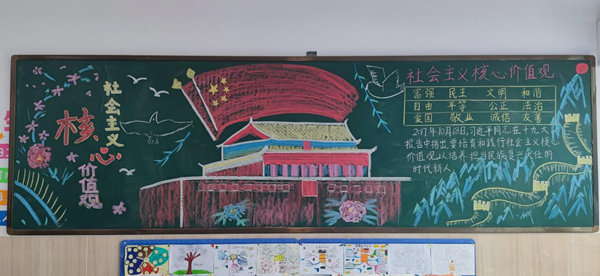 社会主义
核心
价值观
社会主义核心价值观
富强 民主 文明 和谐
自由 平等 公正 法治
爱国 敬业 诚信 友善
2017年10月18日,习近平同志在十九大
报告中指出,要培育和践行社会主义核心
价值观,以培养担当民族复兴大任的
时代新人